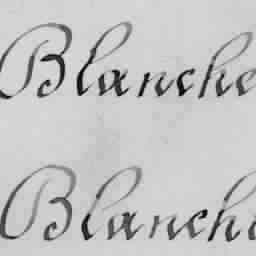 Blanche
Blanche